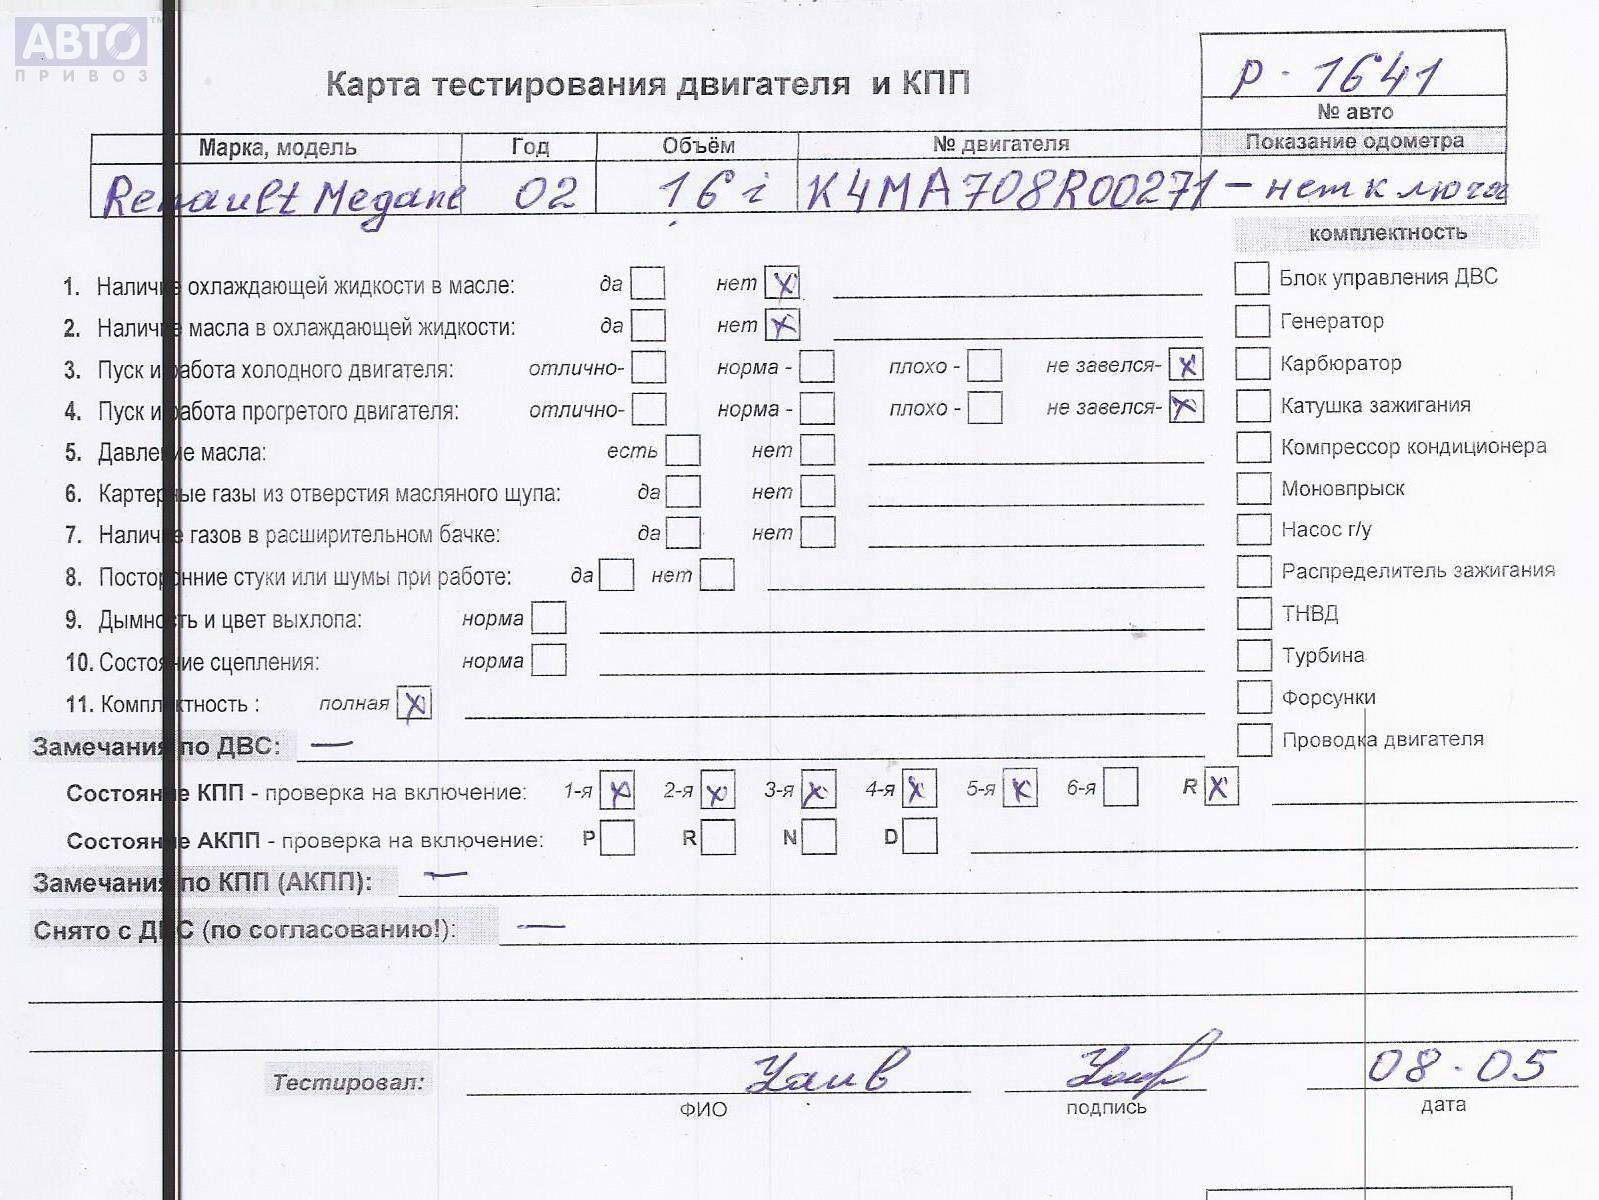 АВТО ™
ПРИВОЗ
Карта тестирования двигателя и КПП
р - 1641
№ авто
Марка, модель Год Объём № двигателя Показание одометра
Renault Megane 02 1.6 i K4MA708R00271 – нет ключа
комплектность
1. Наличие охлаждающей жидкости в масле: да нет X
2. Наличие масла в охлаждающей жидкости: да нет X
3. Пуск и работа холодного двигателя: отлично- норма - плохо - не завелся- X
4. Пуск и работа прогретого двигателя: отлично- норма - плохо - не завелся- X
5. Давление масла: есть нет
6. Картерные газы из отверстия масляного щупа: да нет
7. Наличие газов в расширительном бачке: да нет
8. Посторонние стуки или шумы при работе: да нет
9. Дымность и цвет выхлопа: норма
10. Состояние сцепления: норма
11. Комплектность : полная X
Блок управления ДВС
Генератор
Карбюратор
Катушка зажигания
Компрессор кондиционера
Моновпрыск
Насос г/у
Распределитель зажигания
ТНВД
Турбина
Форсунки
Проводка двигателя
Замечания по ДВС: —
Состояние КПП - проверка на включение: 1-я X 2-я X 3-я X 4-я X 5-я X 6-я R X
Состояние АКПП - проверка на включение: P R N D
Замечания по КПП (АКПП): —
Снято с ДВС (по согласованию!): —
Тестировал: 08.05
ФИО подпись дата